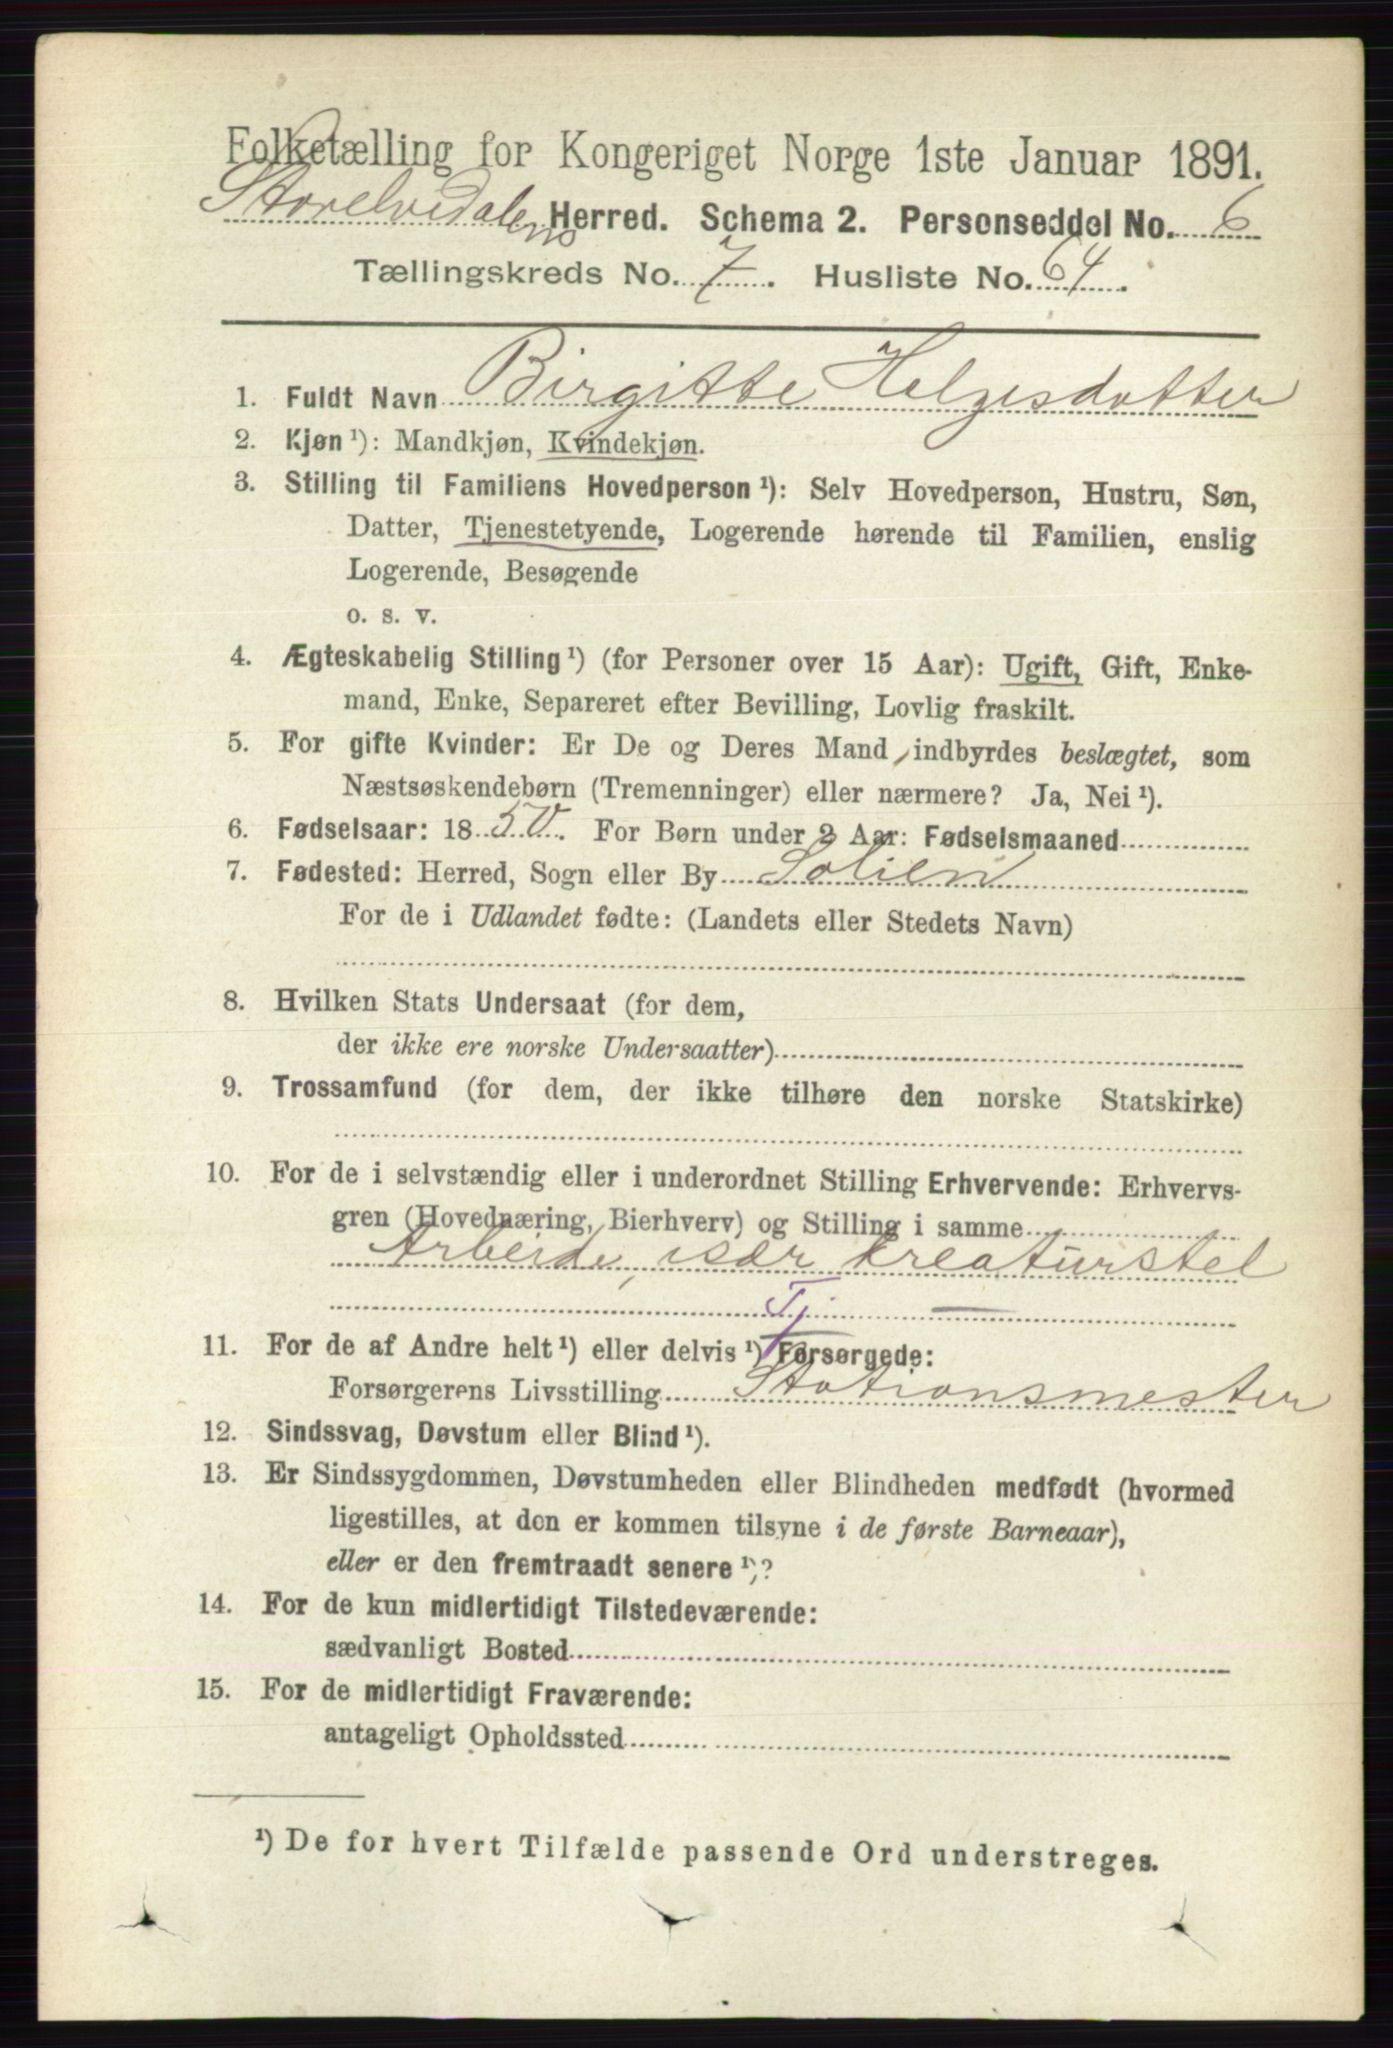 Folketælling for Kongeriget Norge 1ste Januar 1891.
Storelvedalens Herred. Schema 2. Personseddel No. 6
Tællingskreds No. 7. Husliste No. 64.
1. Fuldt Navn Birgitte Helgesdatter
2. Kjøn ¹): Mandkjøn, Kvindekjøn.
3. Stilling til Familiens Hovedperson ¹): Selv Hovedperson, Hustru, Søn,
Datter, Tjenestetyende, Logerende hørende til Familien, enslig
Logerende, Besøgende
o. s. v.
4. Ægteskabelig Stilling ¹) (for Personer over 15 Aar): Ugift, Gift, Enke-
mand, Enke, Separeret efter Bevilling, Lovlig fraskilt.
5. For gifte Kvinder: Er De og Deres Mand indbyrdes beslægtet, som
Næstsøskendebørn (Tremenninger) eller nærmere? Ja, Nei ¹).
6. Fødselsaar: 1850. For Børn under 2 Aar: Fødselsmaaned
7. Fødested: Herred, Sogn eller By Solien
For de i Udlandet fødte: (Landets eller Stedets Navn)
8. Hvilken Stats Undersaat (for dem,
der ikke ere norske Undersaatter)
9. Trossamfund (for dem, der ikke tilhøre den norske Statskirke)
10. For de i selvstændig eller i underordnet Stilling Erhvervende: Erhvervs-
gren (Hovednæring, Bierhverv) og Stilling i samme
Arbeide, især kreaturstel
Tj
11. For de af Andre helt ¹) eller delvis ¹) Forsørgede:
Forsørgerens Livsstilling Stationsmester
12. Sindssvag, Døvstum eller Blind ¹).
13. Er Sindssygdommen, Døvstumheden eller Blindheden medfødt (hvormed
ligestilles, at den er kommen tilsyne i de første Barneaar),
eller er den fremtraadt senere ¹)?
14. For de kun midlertidigt Tilstedeværende:
sædvanligt Bosted
15. For de midlertidigt Fraværende:
antageligt Opholdssted
¹) De for hvert Tilfælde passende Ord understreges.